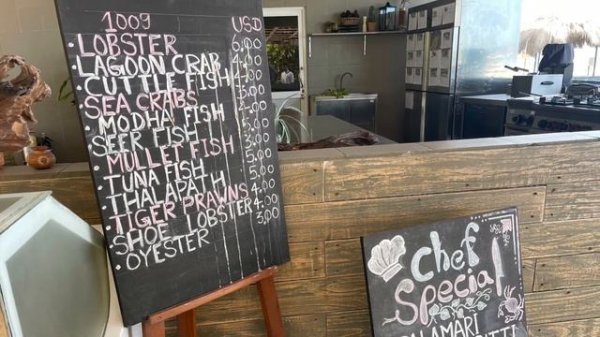 100g USD
· LOBSTER 6.00
· LAGOON CRAB 4.00
· CUTTLE FISH
· SEA CRABS
· MODHA FISH
· SEER FISH
· MULLET FISH
· TUNA FISH 5.00
· THALAPATH 5.00
· TIGER PRAWNS 4.00
· SHOE LOBSTER 4.00
· OYESTER 3.00
Chef
Special
CALAMARI